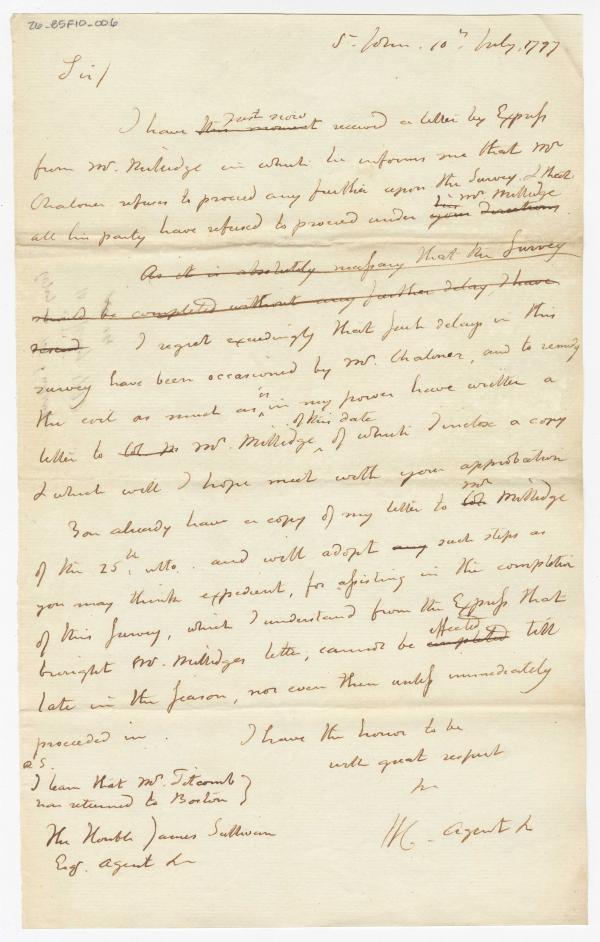 26-B5F10-006
St John. 10th July, 1797
Sir/
just now
I have this moment received a letter by Express
from Mr. Millidge in which he informs me that Mr
Chaloner refuses to proceed any further upon the Survey & that
his Mr Millidge
all his party have refused to proceed under your directions
As it is absolutely necessary that the Survey
should be completed without any further delay, I have
I regret exceedingly that such delays in this
survey have been occasioned by Mr. Chaloner, and to remedy
the evil as much as is in my power have written a
of this date
letter to Col Mr. Millidge, of which I inclose a copy
& which will I hope meet with your approbation
Mr
You already have a copy of my letter to Col Millidge
of the 25th ulto. and will adopt any such steps as
you may think expedient, for assisting in the completion
of this Survey, which I understand from the Express that
effected
brought Mr. Millidges letter, cannot be completed till
late in the Season, nor even then unless immediately
proceeded in.
I have the honor to be
with great respect
&c
P.S.
I learn that Mr. Titcomb
has returned to Boston
HC. Agent &c
The Honble James Sullivan
Esqr. Agent &c